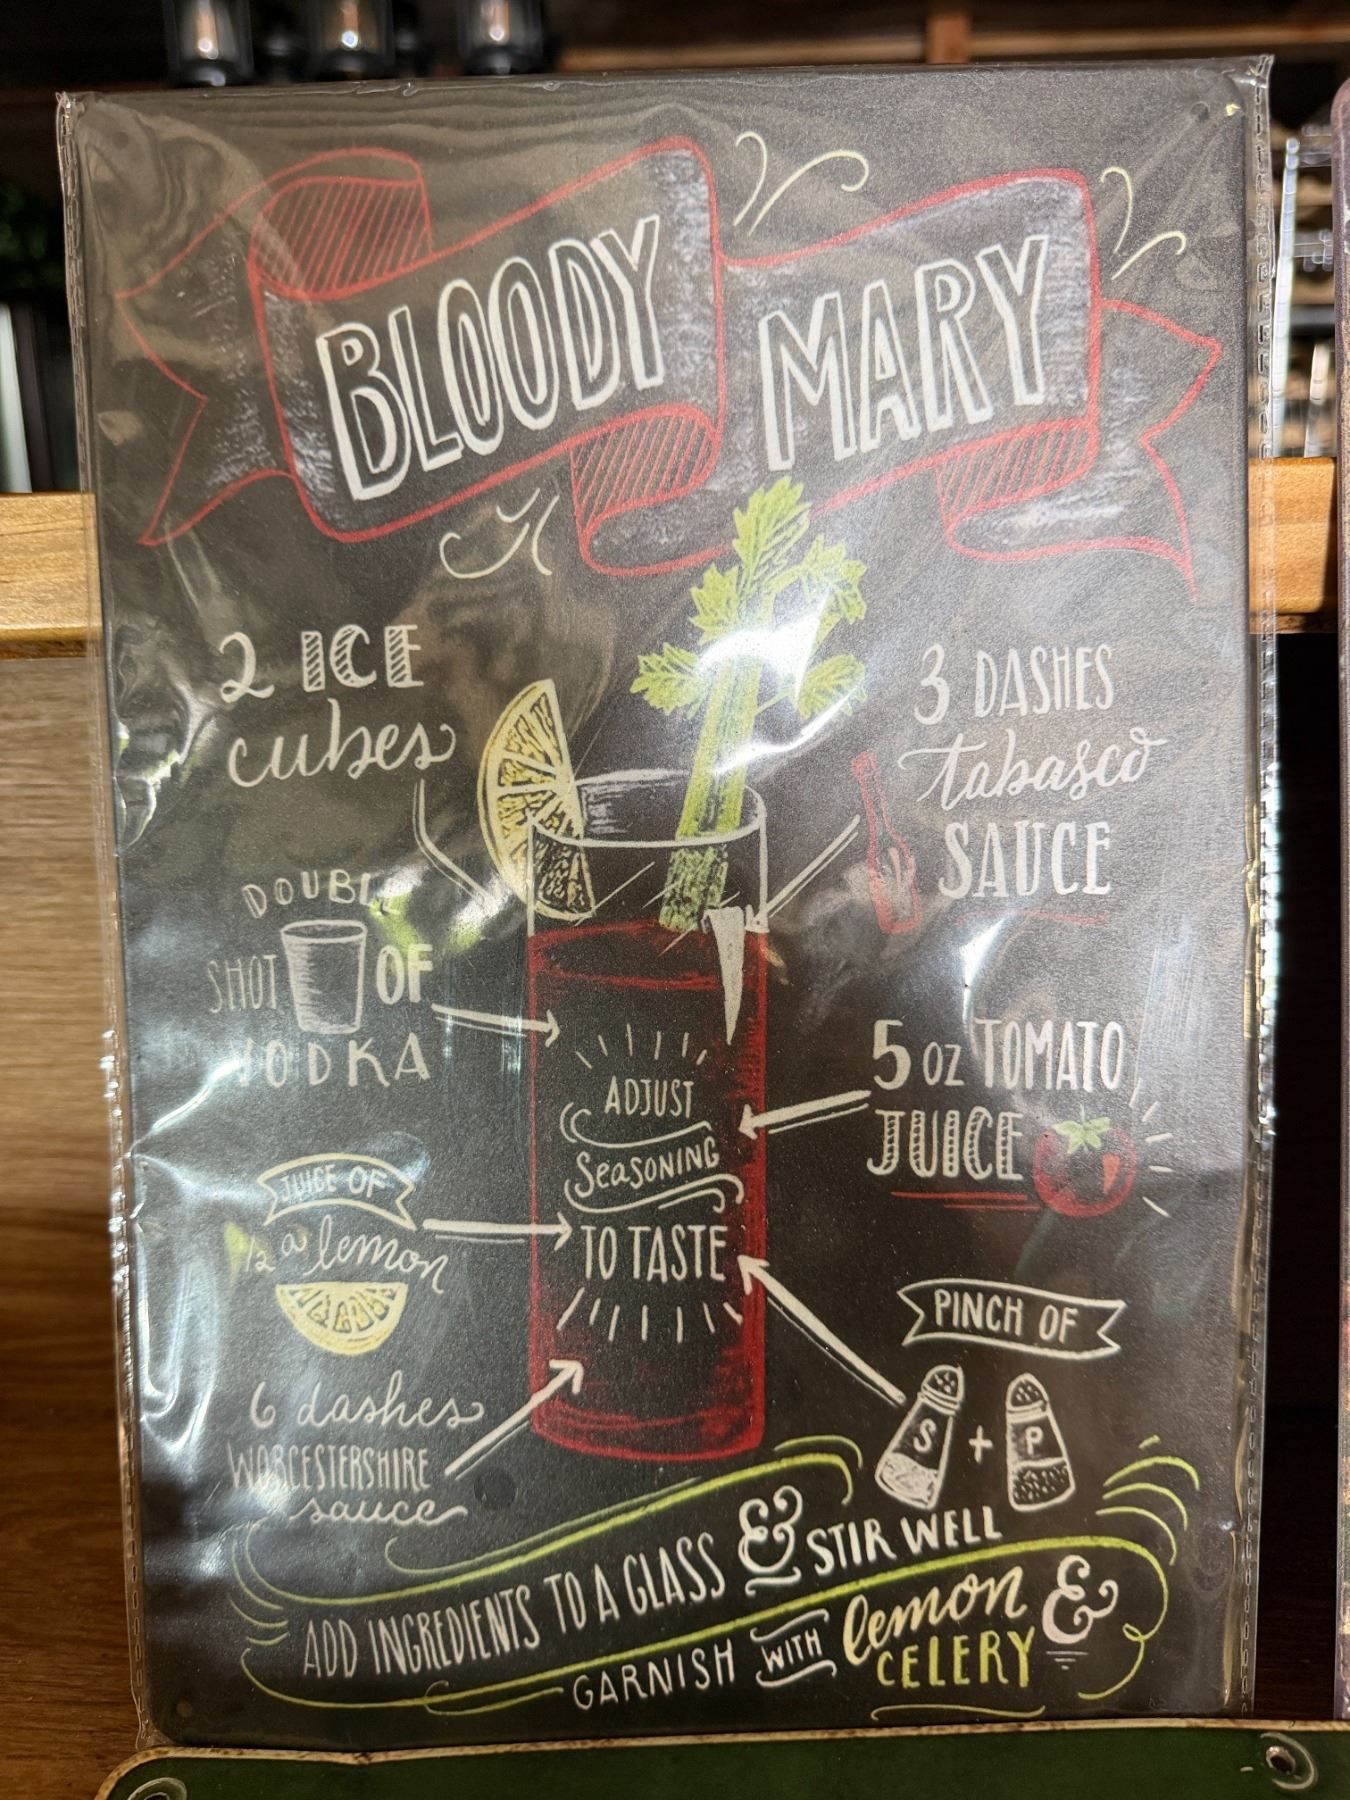 BLOODY MARY
2 ICE
cubes
3 DASHES
tabasco
SAUCE
DOUBLE
SHOT OF
VODKA
5 OZ TOMATO
JUICE
ADJUST
SEASONING
TO TASTE
JUICE OF
1/2 a lemon
PINCH OF
S + P
6 dashes
WORCESTERSHIRE
sauce
ADD INGREDIENTS TO A GLASS & STIR WELL
GARNISH WITH lemon &
CELERY